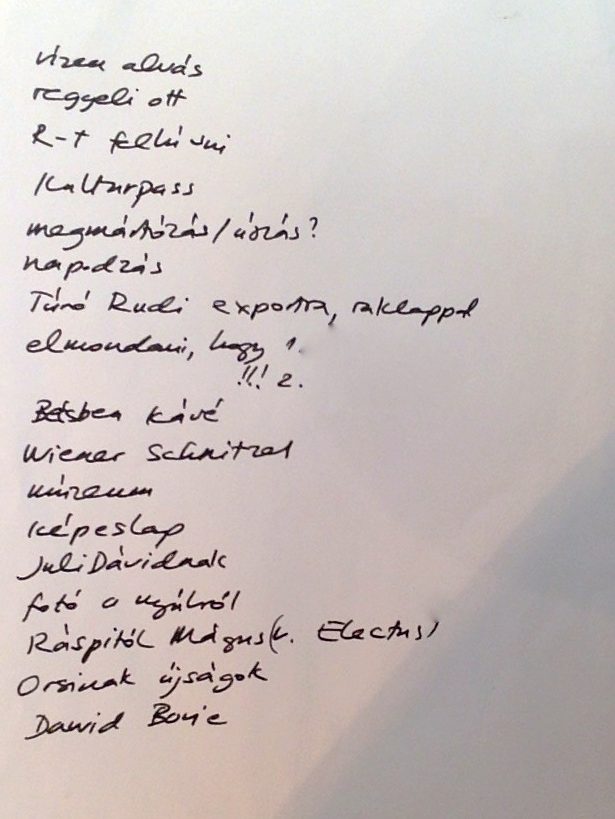 vízen alvás
reggeli ott
R-t felhívni
Kulturpass
megmártózás/úszás?
napozás
Túró Rudi exportra, raklappal
elmondani, hogy 1.
!!! 2.
Bécsben kávé
Wiener Schnitzel
múzeum
képeslap
Juli Dávidnak
fotó a nyúlról
Ráspitól Mágus(v. Electus)
Orsinak újságok
David Bowie